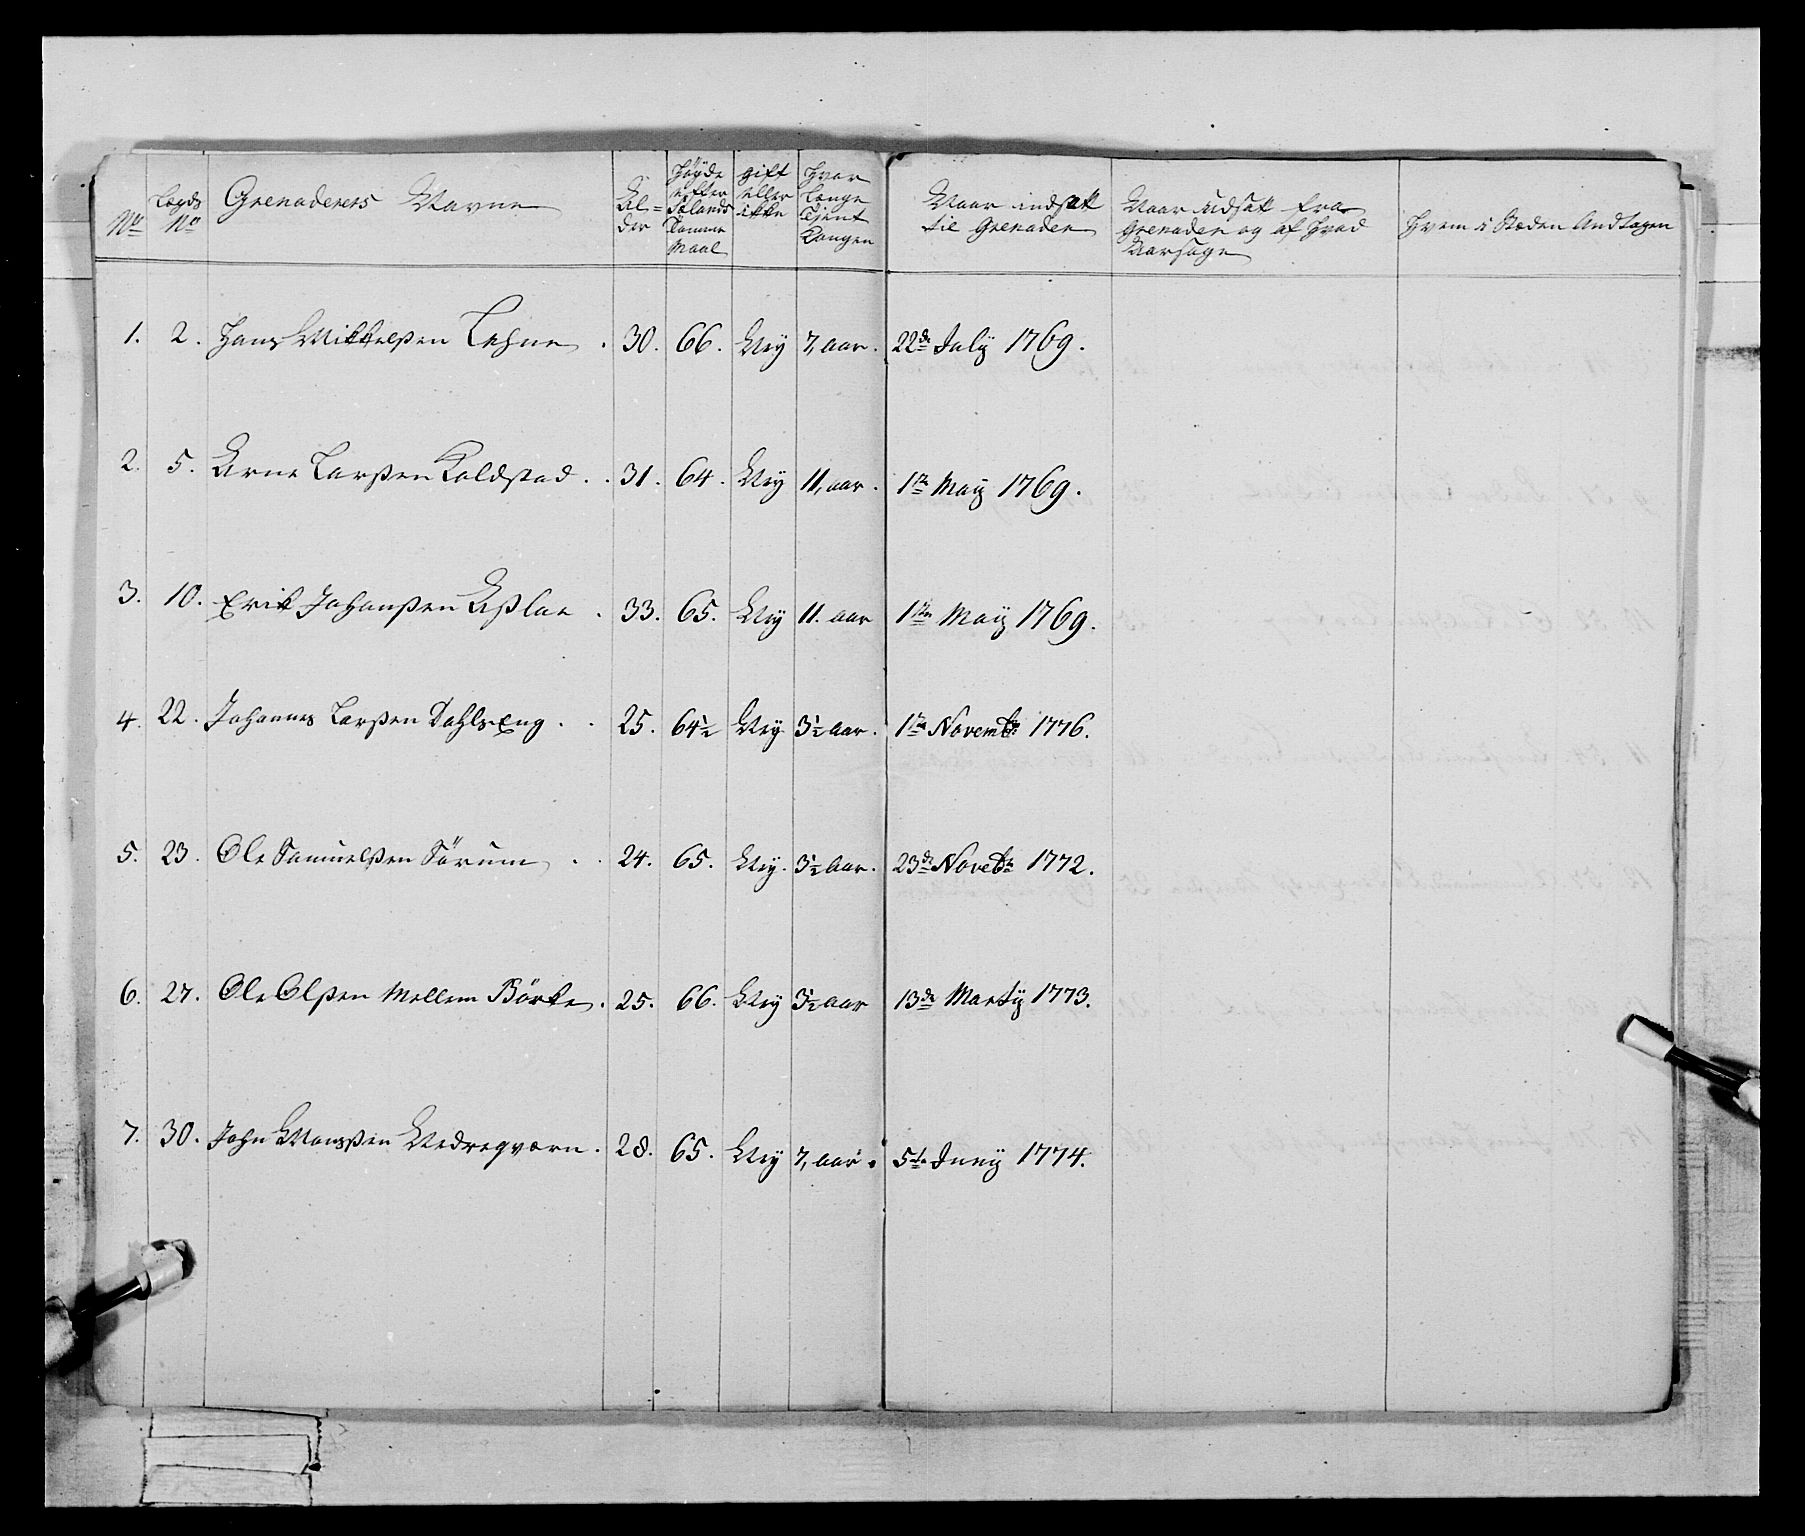 No
Lægds No
Grenaderers Navne
Al=
der
Høyde
efter
Siælands
Tomme
Maal
gift
eller
ikke
Hvor
Længe
tient
Kongen
Naar indsatt
til Grenader
Naar udsatt fra
Grenader og af Hvad
Aarsage
Hvem i Steden Andtagen
1. 2. Hans Mikkelßen Lehne . 30. 66. Ney 7, aar. 22de July 1769.
2. 5. Arne Larßen Koldstad . . 31. 64. Ney 11, aar. 1te Maij 1769.
3. 10. Erik Johanßen Aßlae . 33. 65. Ney 11. aar 1te Maij 1769.
4. 22. Johannes Larßen Dahls Eng . . 25. 64½ Ney 3½ aar. 1te Novembr 1776.
5. 23. Ole Samuelßen Sörum . . 24. 65. Ney. 3½ aar. 23de Novebr 1772.
6. 27. Ole Olßen Mellem Börke . 25. 66. Ney 3½ aar 13de Martij 1773.
7. 30. John Monsßen Nedreqværn . 28. 65. Ney 7, aar. 5te Junij 1774.